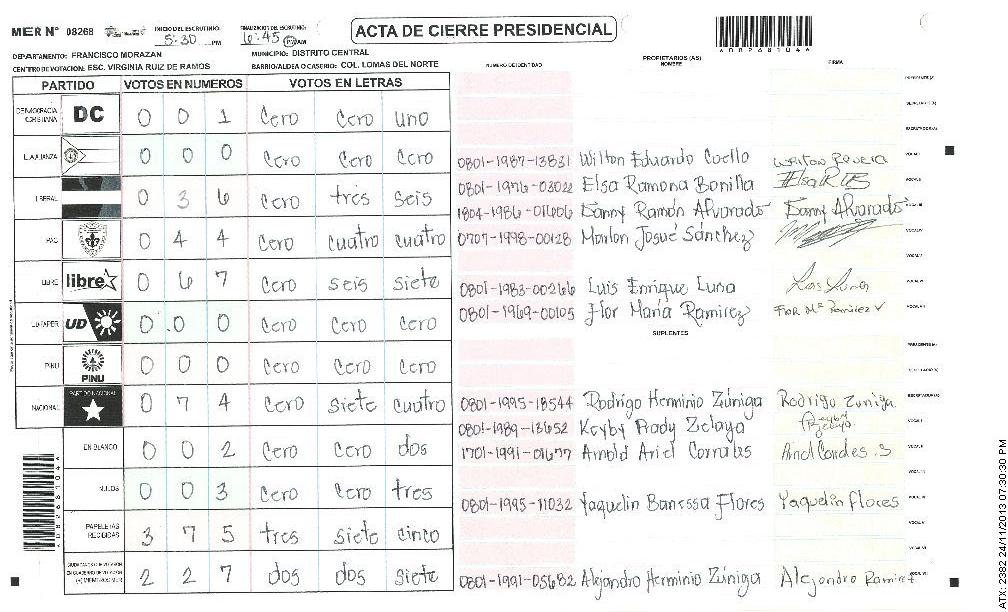 MER Nº 08268
INICIO DEL ESCRUTINIO: 5:30 PM
FINALIZACION DEL ESCRUTINIO: 6:45 PM AM
ACTA DE CIERRE PRESIDENCIAL
DEPARTAMENTO: FRANCISCO MORAZAN
MUNICIPIO: DISTRITO CENTRAL
CENTRO DE VOTACION: ESC. VIRGINIA RUIZ DE RAMOS
BARRIO/ALDEA O CASERIO: COL. LOMAS DEL NORTE
PARTIDO VOTOS EN NUMEROS VOTOS EN LETRAS
DEMOCRACIA CRISTIANA DC 0 0 1 Cero Cero uno
0 0 0 Cero Cero Cero
LIBERAL 0 3 6 Cero tres seis
PAC 0 4 4 Cero cuatro cuatro
LIBRE libre 0 6 7 Cero seis siete
UD 0 0 0 Cero Cero Cero
PINU PINU 0 0 0 Cero Cero Cero
NACIONAL PARTIDO NACIONAL 0 7 4 Cero siete cuatro
EN BLANCO 0 0 2 Cero Cero dos
NULOS 0 0 3 Cero Cero tres
PAPELETAS RECIBIDAS 3 7 5 tres siete cinco
2 2 7 dos dos siete
NUMERO DE IDENTIDAD
PROPIETARIOS (AS)
NOMBRE
FIRMA
0801-1987-13831 Wilton Eduardo Coello
0801-1976-03022 Elsa Ramona Bonilla
1804-1986-01606 Danny Ramón Alvarado Danny Alvarado
0707-1998-00128 Marlon Josué Sánchez
0801-1983-00266 Luis Enrique Luna Luis Luna
0801-1969-00105 Flor María Ramirez Flor Mª Ramirez
SUPLENTES
0801-1995-18544 Rodrigo Herminio Zúniga Rodrigo Zuniga
0801-1989-13652 Keyby Rady Zelaya
1701-1991-01677 Arnold Ariel Corrales
0801-1995-11032 Yaquelin Banessa Flores Yaquelin flores
0801-1991-05682 Alejandro Herminio Zúniga Alejandro
ATX 2382 24/11/2013 07:30:30 PM